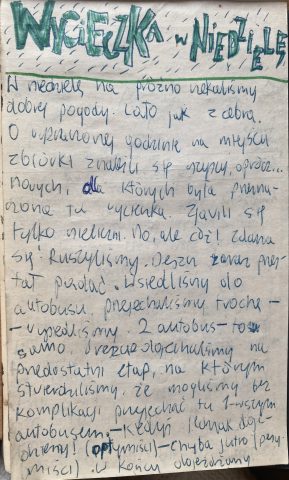 WYCIECZKA w NIEDZIELĘ
W niedzielę na próżno czekaliśmy
dobrej pogody. Lało jak z cebra.
O umówionej godzinie na miejscu
zbiórki znaleźli się wszyscy, oprócz...
nowych, dla których była przezna-
czona ta wycieczka. Zjawili się
tylko nieliczni. No, ale cóż! Zdarza
się! Ruszyliśmy. Deszcz zaraz przes-
tał padać. Wsiedliśmy do
autobusu przejechaliśmy trochę -
- wysiedliśmy. 2 autobus - to
samo. Wreszcie dojechaliśmy na
przedostatni etap, na którym
stwierdziliśmy, że mogliśmy bez
komplikacji przejechać tu 1-wszym
autobusem. - Kiedyś jednak doje-
dziemy! (optymiści) - chyba jutro (pesy-
miści). W końcu dojeżdżamy